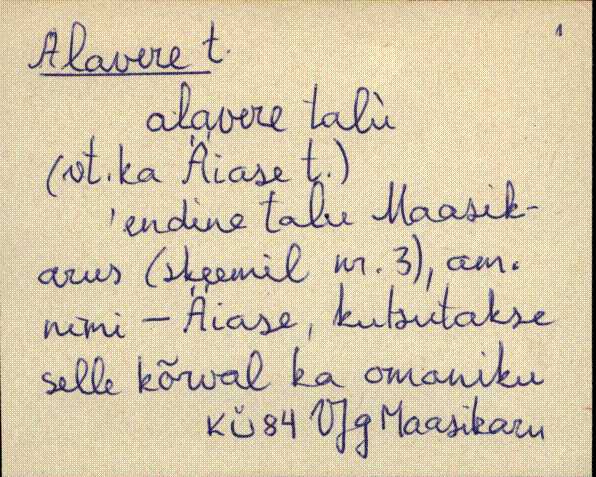 1
Alavere t.
alavere talù
(vt. ka Äiase t.)
'endine talu Maasik-
arus (skeemil nr. 3), am.
nimi – Äiase, kutsutakse
selle kõrval ka omaniku
KÜ 84 VJg Maasikaru